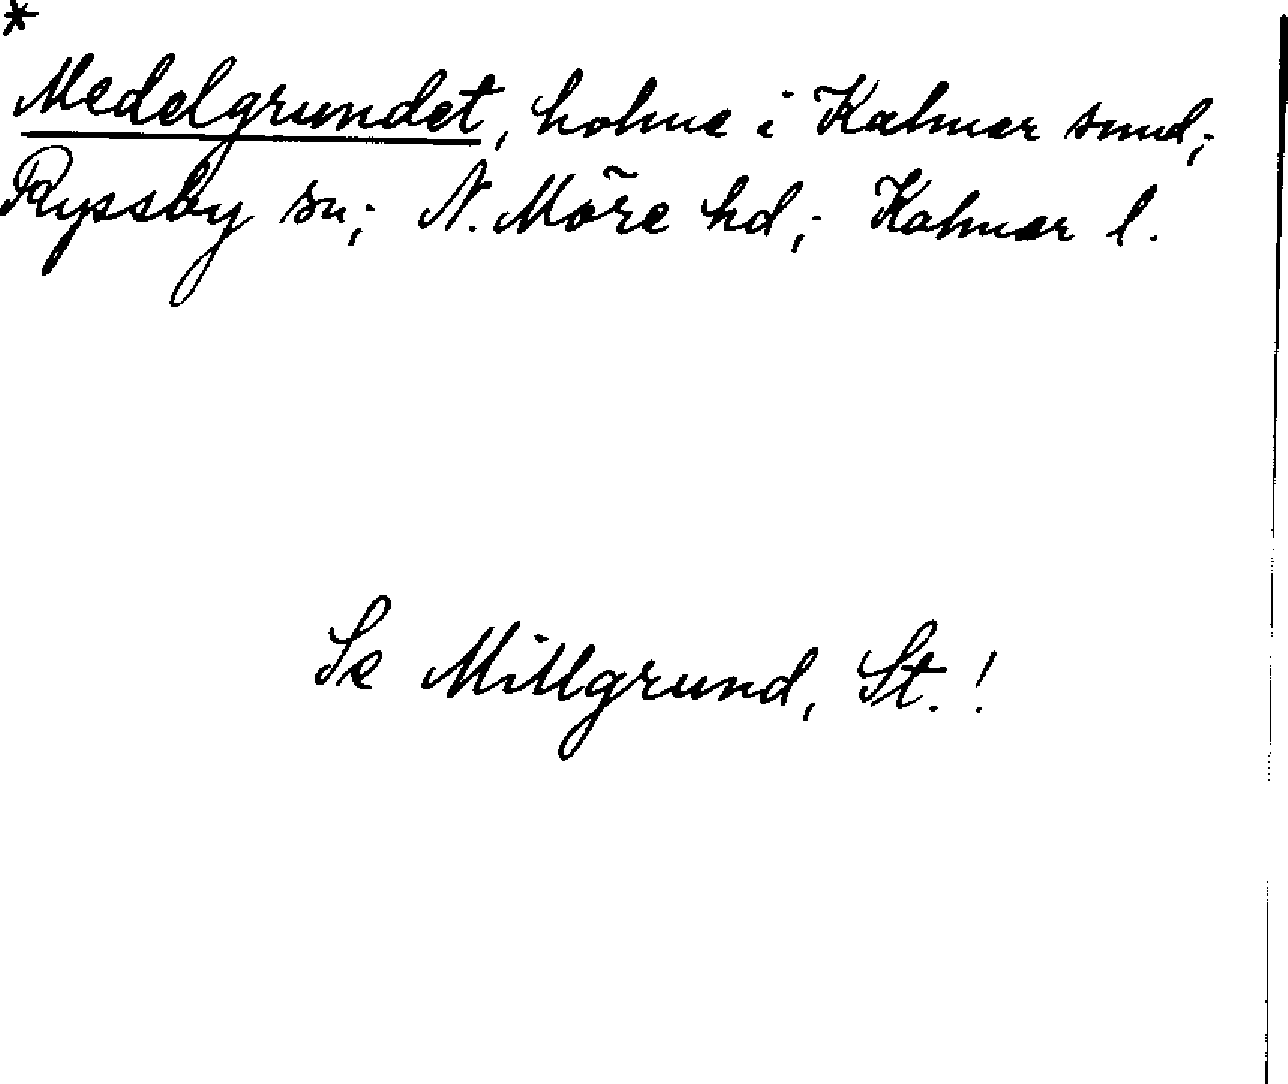 *
Medelgrundet, holme i Kalmar sund;
Ryssby sn; N. Möre hd; Kalmar l.
Se Millgrund, St.!